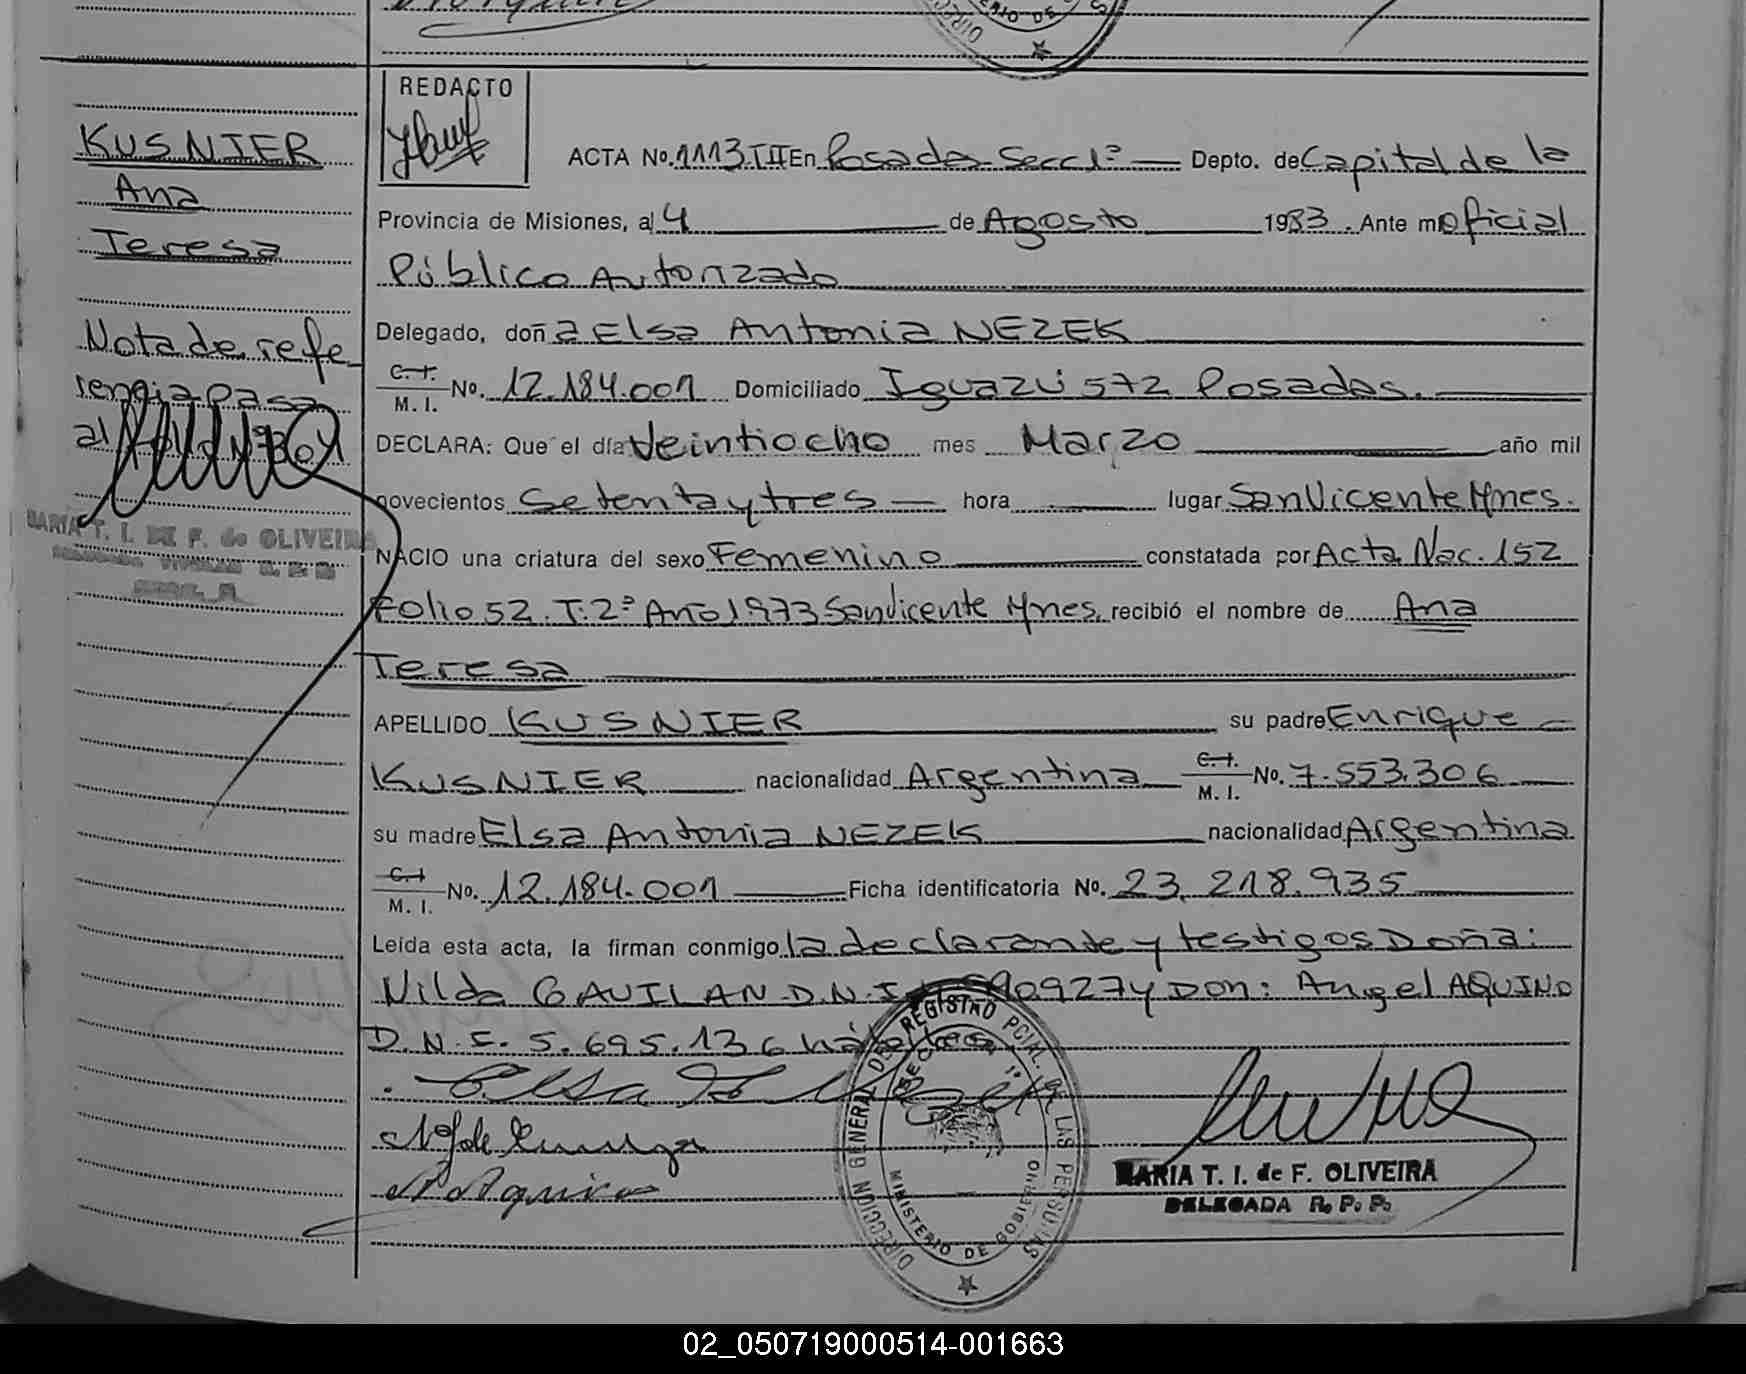 KUSNIER
Ana
Teresa
Nota de refe
rencia pasa
al
MARIA T. I. DE F. de OLIVEIRA
REDACTO
ACTA No. 1113 III En Posadas Secc 1ª Depto. de Capital de la
Provincia de Misiones, al 4 de Agosto 1983. Ante mi oficial
Público Autorizado
Delegado, doña Elsa Antonia NEZEK
C. I. M. I. No. 12.184.001 Domiciliado Iguazú 572 Posadas.
DECLARA: Que el día Veintiocho mes Marzo año mil
novecientos Setenta y tres hora lugar San Vicente Mnes.
NACIO una criatura del sexo Femenino constatada por Acta Nac. 152
Folio 52. T. 2º Año 1973 San Vicente Mnes, recibió el nombre de Ana
Teresa
APELLIDO KUSNIER su padre Enrique
KUSNIER nacionalidad Argentina C. I. M. I. No. 7.553.306
su madre Elsa Antonia NEZEK nacionalidad Argentina
C. I M. I. No. 12.184.001 Ficha identificatoria No. 23.218.935
Leida esta acta, la firman conmigo la declarante y testigos Doña:
Nilda GAVILAN D.N.I. y Don: Angel AQUINO
D.N.I. 5.695.136 hábiles
DIRECCION GENERAL DEL REGISTRO PCIAL. DE LAS PERSONAS
SECC. 1ª
MINISTERIO DE GOBIERNO
MARIA T. I. de F. OLIVEIRA
DELEGADA R. P. P.
02_050719000514-001663